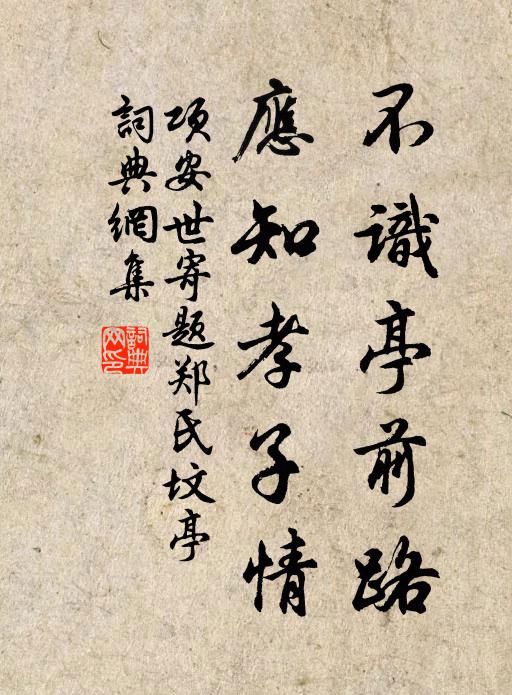 不識亭前路
應知孝子情
项安世寄题郑氏坟亭
詞典網集
詞典
网印